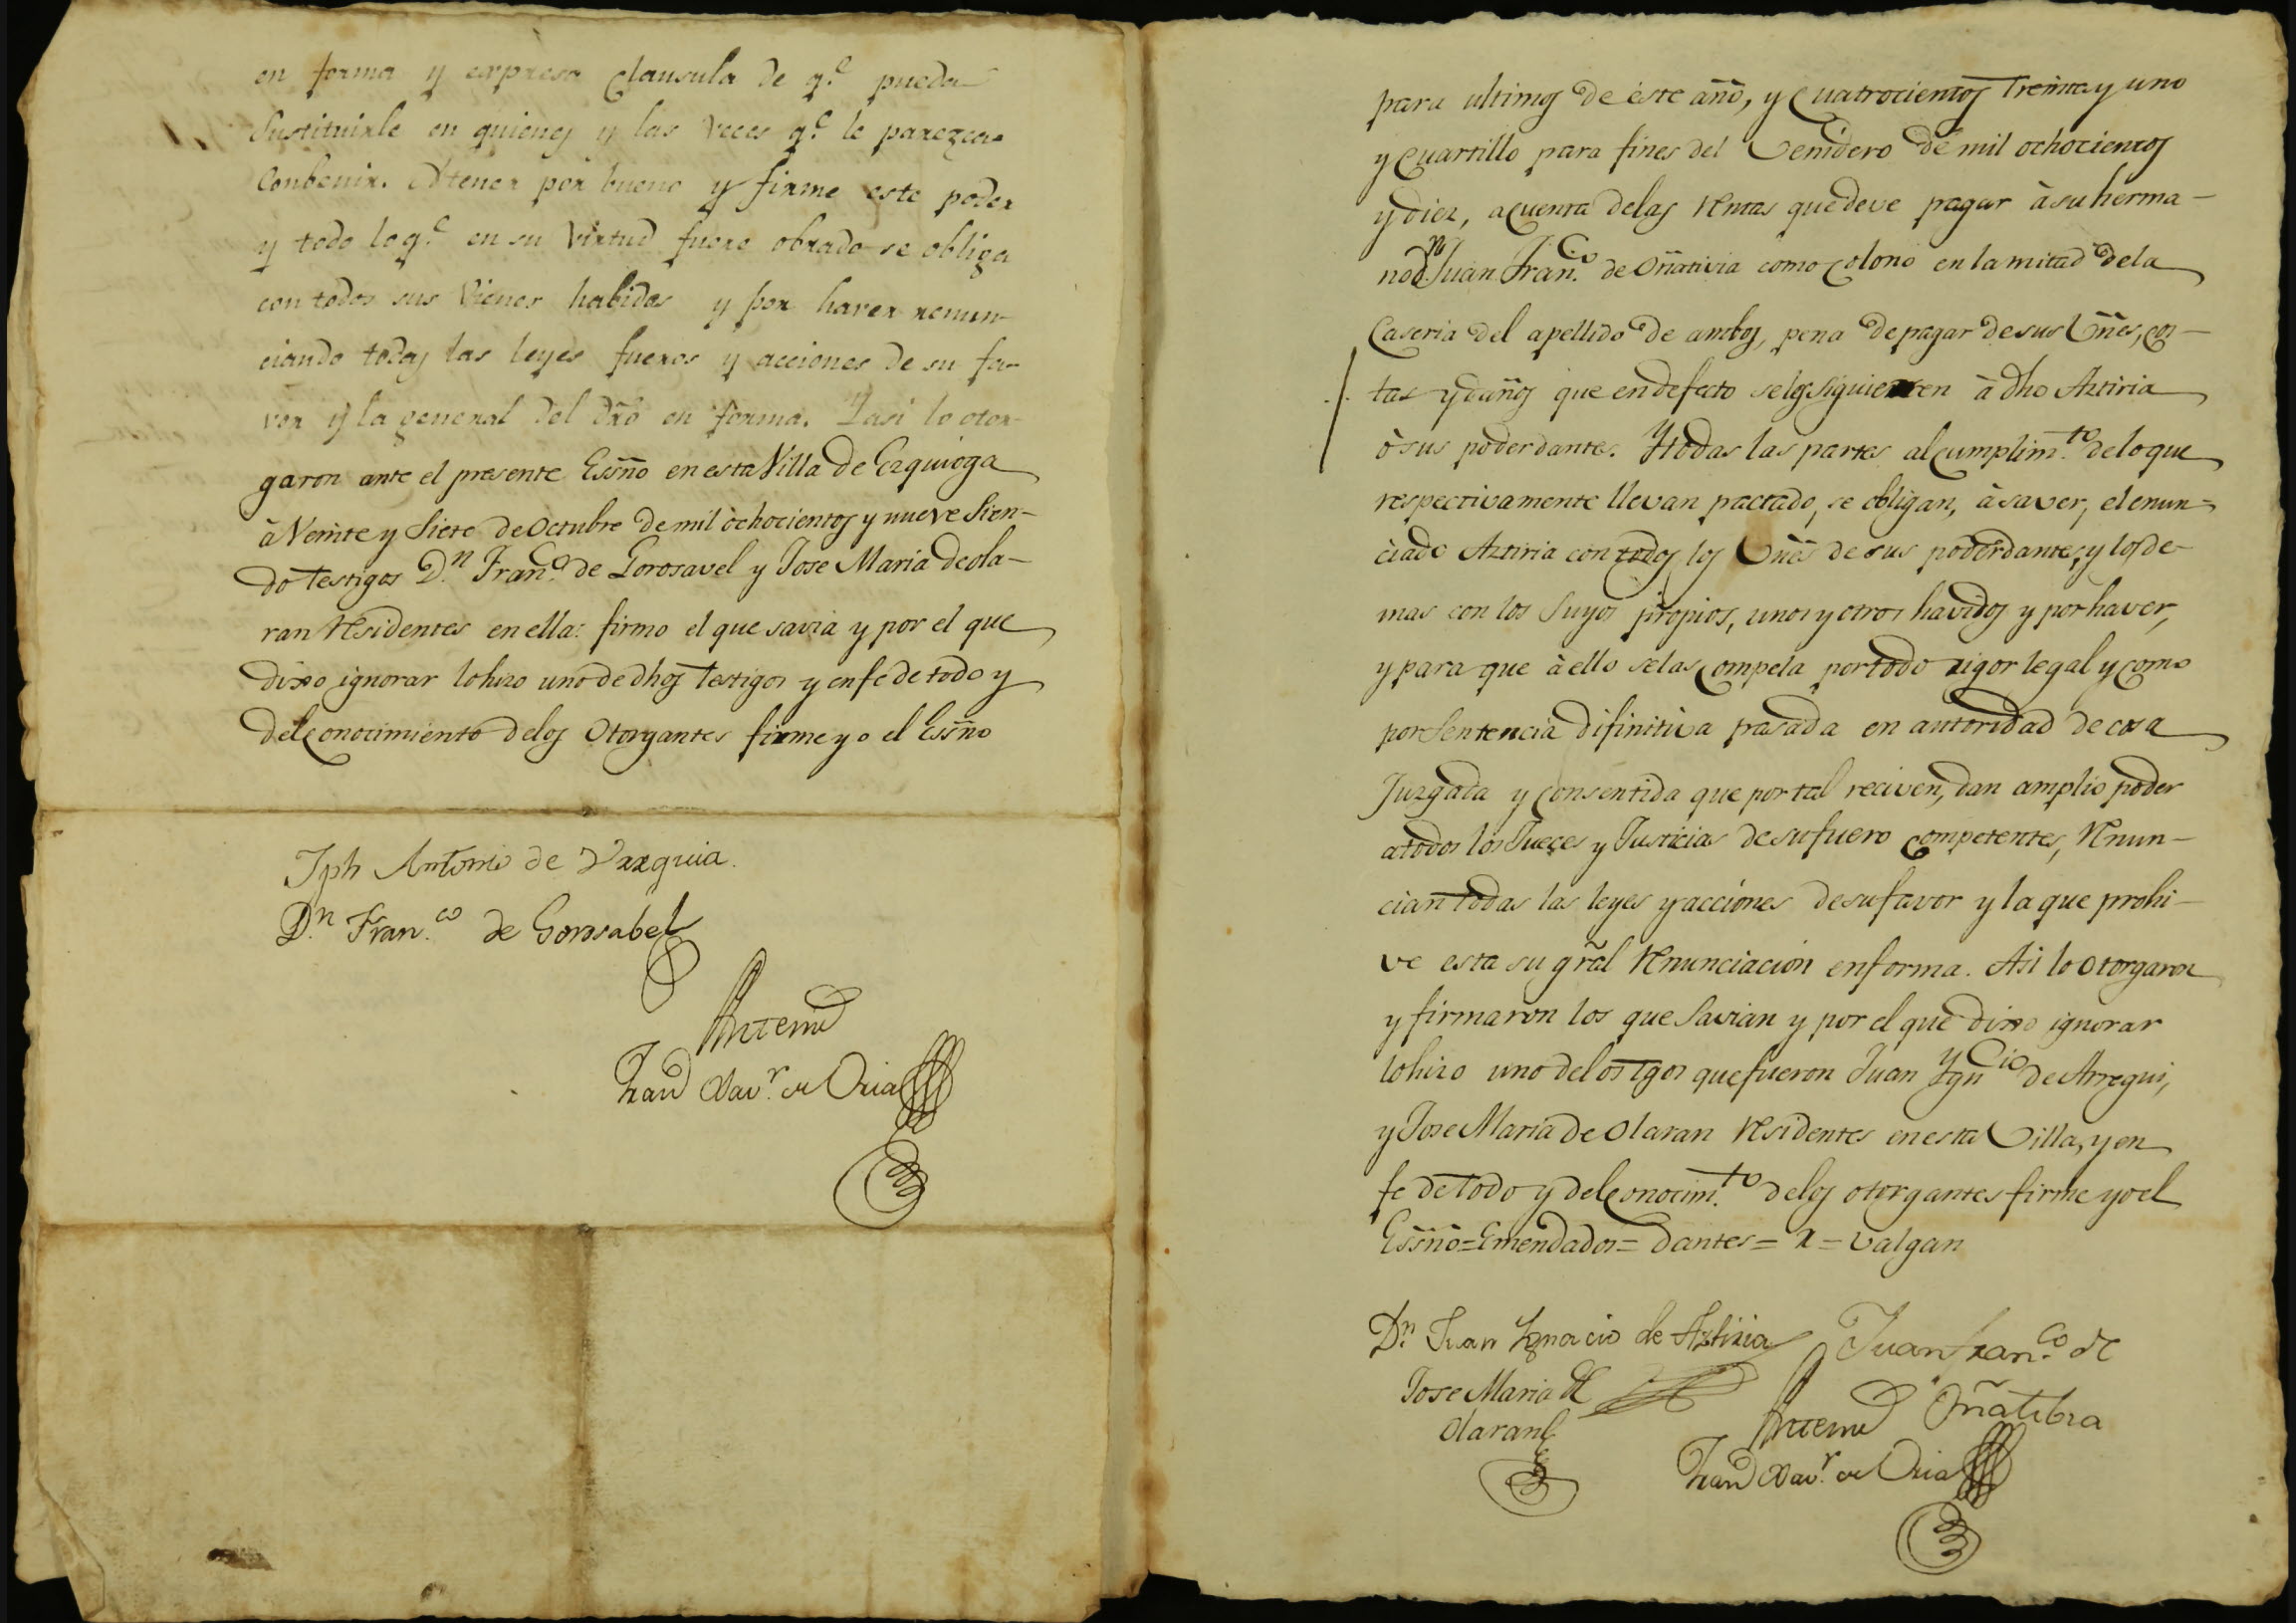 en forma y expresa Clausula de q.e pueda
Sustituirle en quienes y las veces q.e le parezca
Conbenir. A tener por bueno y firme este poder
y todo lo q.e en su Virtud fuere obrado se obliga
con todos sus Vienes habidos y por haver renun-
ciando todas las leyes fueros y acciones de su fa-
vor y la general del dr̃o en forma. Yasi lo otor-
garon ante el presente Essño en esta Villa de Ezquioga
à Veinte y Siete de Octubre de mil òchocientos y nueve Sien-
do testigos D.n Fran.co de Gorosavel y Jose Maria de ola-
ran residentes en ella: firmo el que savia y por el que
dixo ignorar lo hizo uno de dhos testigos y en fe de todo y
del conocimiento de los Otorgantes firme yo el Essño
Jph Antonio de Urxquia.
D.n Fran.co de Gorosabel
Antemi
Fran.co Xav.r de Oria
para ultimos de este año, y Cuatrocientos Treinta y uno
y Cuartillo para fines del Venidero de mil ochocientos
y diez, a cuenta de las rentas que deve pagar à su herma-
no d.n Juan Fran.co de Oñativia como Colono en la mitad de la
Caseria del apellido de ambos, pena de pagar de sus Vñes, cos-
tas y daños que en defecto se les siguieren à dho Aztiria
ò sus poderdantes. Y todas las partes al cumplim.to de lo que
respectivamente llevan pactado, se obligan, à saver, el enun-
ciado Aztiria con todos los Vñes de sus poderdantes, y los de-
mas con los Suyos propios, unos y otros havidos y por haver,
y para que à ello se las Compela por todo rigor legal y como
por Sentencia difinitiva pasada en autoridad de cosa
Juzgada y Consentida que por tal reciven, dan amplio poder
a todos los Jueces y Justicias de su fuero Competentes, renun-
cian todas las leyes y acciones de su favor y la que prohi-
ve esta su gr̃al renunciacion en forma. Asi lo otorgaron
y firmaron los que Savian y por el que dixo ignorar
lo hizo uno de los tgos que fueron Juan Ygn.cio de Arregui,
y Jose Maria de Olaran residentes en esta Villa, y en
fe de todo y del Conocim.to de los otorgantes firme yo el
Essño = Emendados = dantes = r = valgan
D.n Juan Ygnacio de Aztiria Juan Fran.co de
Jose Maria de Oñatibia
Olaran Antemi
Fran.co Xav.r de Oria